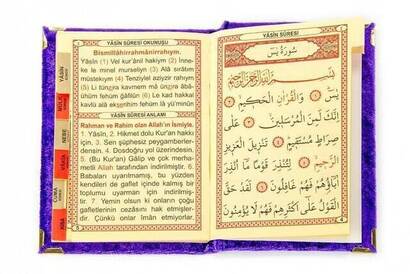 YÂSÎN SÛRESİ OKUNUŞU
Bismillâhirrahmânirrahîm.
Yâsîn (1) Vel kur'ânil hakiym (2) İnne-
ke le minel murseliyn (3) Alâ sırâtım
müstekıym (4) Tenziylel aziyzir rahıym
(5) Li tünzira kavmem mâ ünzira âbâ-
ühüm fehüm ğâfilûn (6) Le kad hakkal
kavlü alâ ekserihim fehüm lâ yü'minûn
YÂSÎN SÛRESİ ANLAMI
Rahman ve Rahim olan Allah'ın ismiyle.
1. Yâsîn, 2. Hikmet dolu Kur'an hakkı
için, 3. Sen şüphesiz peygamberler-
densin. 4. Dosdoğru yol üzerindesin.
5. (Bu Kur'an) Gâlip ve çok merha-
metli Allah tarafından indirilmiştir. 6.
Babaları uyarılmamış, bu yüzden
kendileri de gaflet içinde kalmış bir
toplumu uyarman için indirilmiş-
tir. 7 Yemin olsun ki onların çoğu
gafletlerinin cezâsını hak etmişler-
dir. Çünkü onlar îmân etmiyorlar.
YÂSÎN
NEBE
سُورَةُ يٰسٓ
بِسْمِ اللّٰهِ الرَّحْمٰنِ الرَّحِيمِ
يٰسٓ ﴿١﴾ وَالْقُرْاٰنِ الْحَكِيمِ ﴿٢﴾
اِنَّكَ لَمِنَ الْمُرْسَلِينَ ﴿٣﴾ عَلٰى
صِرَاطٍ مُسْتَقِيمٍ ﴿٤﴾ تَنْزِيلَ الْعَزِيزِ
الرَّحِيمِ ﴿٥﴾ لِتُنْذِرَ قَوْمًا مَٓا اُنْذِرَ
اٰبَٓاؤُهُمْ فَهُمْ غَافِلُونَ ﴿٦﴾ لَقَدْ حَقَّ
الْقَوْلُ عَلٰٓى اَكْثَرِهِمْ فَهُمْ لَا يُؤْمِنُونَ